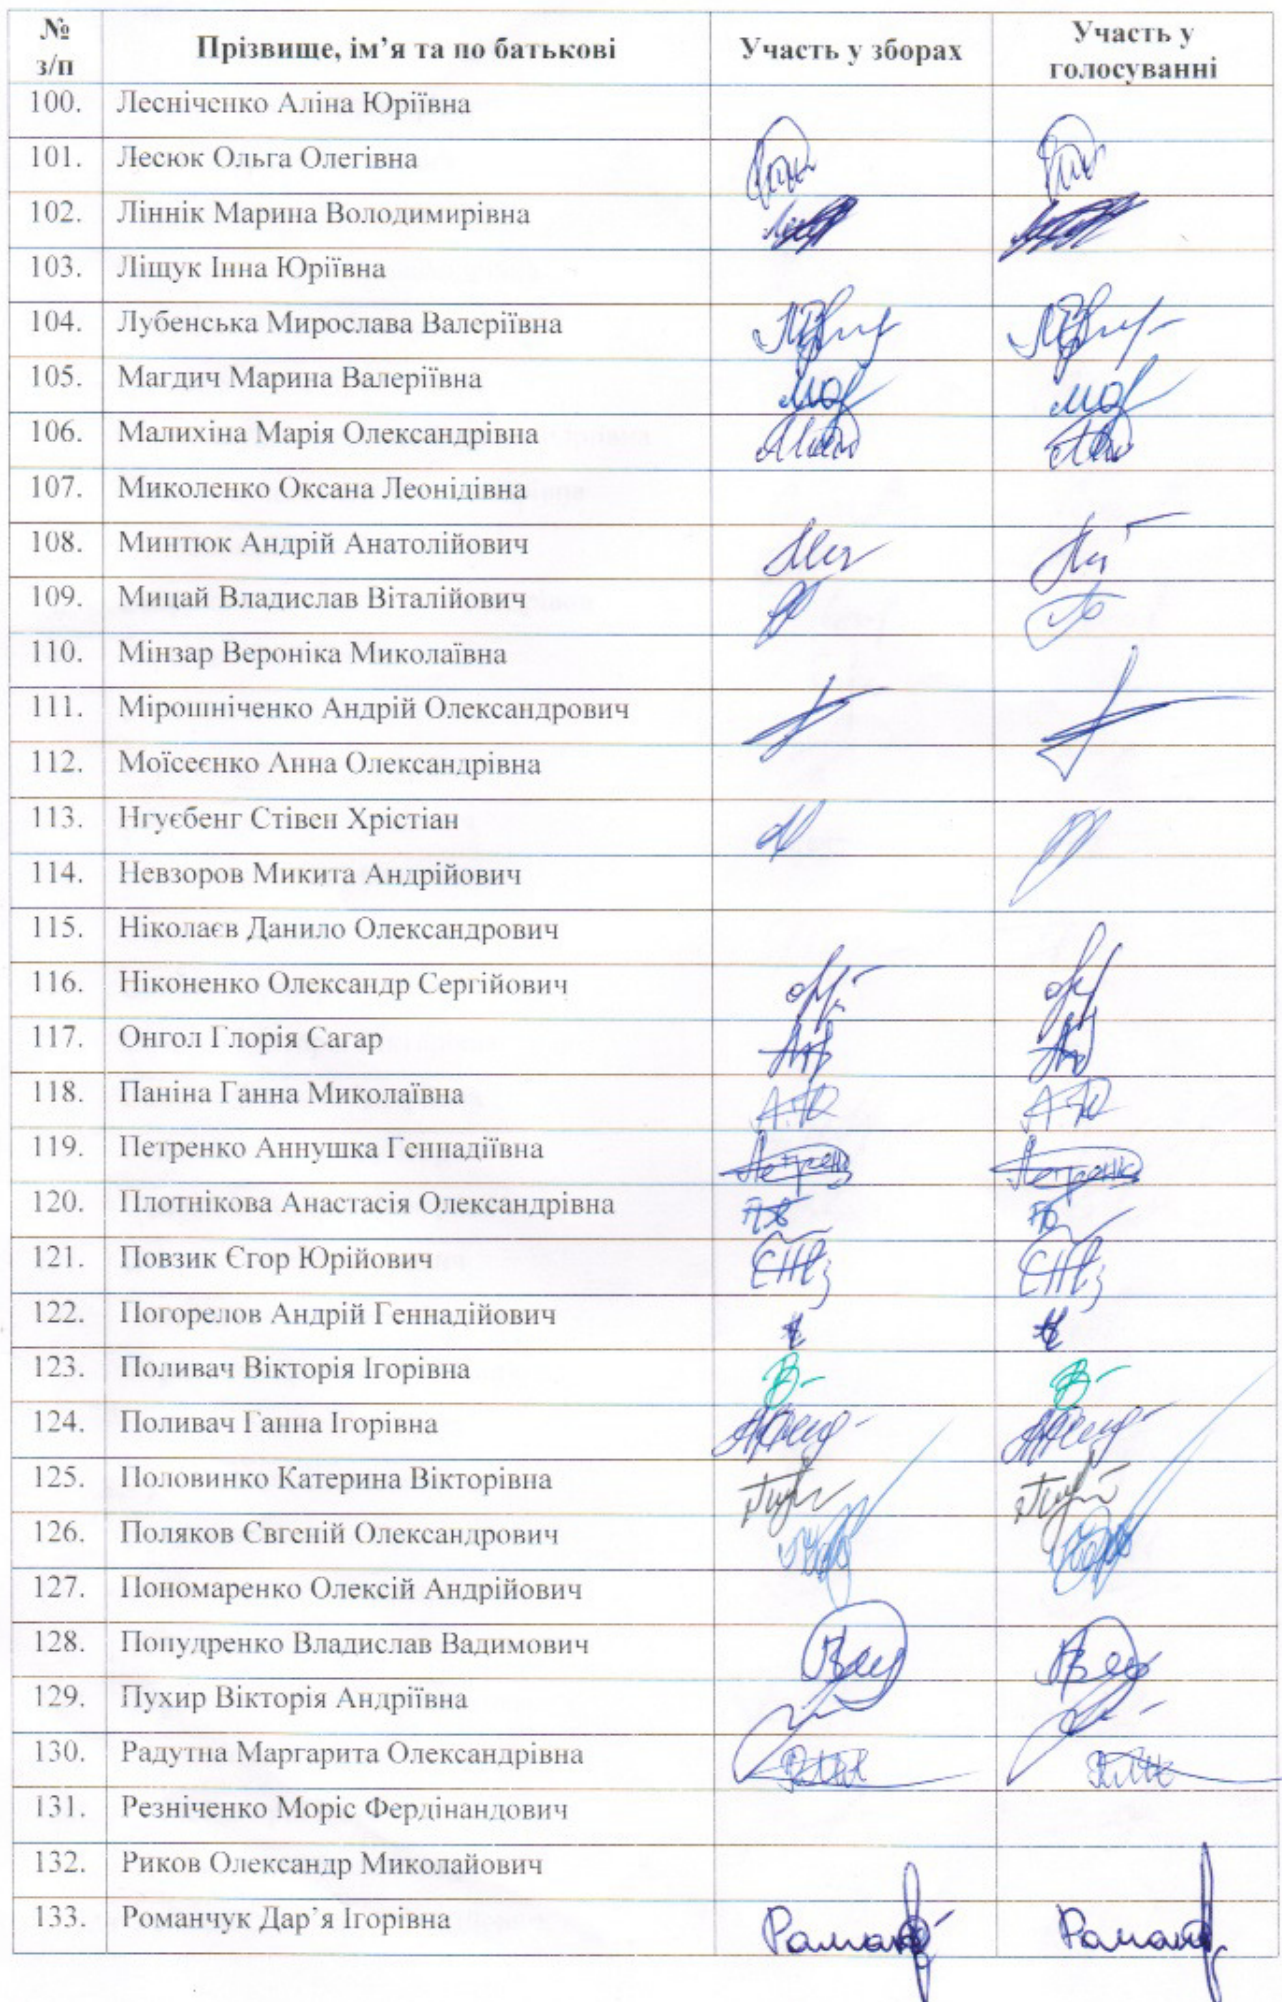 № з/п Прізвище, ім’я та по батькові Участь у зборах Участь у голосуванні
100. Лесніченко Аліна Юріївна
101. Лесюк Ольга Олегівна
102. Ліннік Марина Володимирівна
103. Ліщук Інна Юріївна
104. Лубенська Мирослава Валеріївна
105. Магдич Марина Валеріївна
106. Малихіна Марія Олександрівна
107. Миколенко Оксана Леонідівна
108. Минтюк Андрій Анатолійович
109. Мицай Владислав Віталійович
110. Мінзар Вероніка Миколаївна
111. Мірошніченко Андрій Олександрович
112. Моїсеєнко Анна Олександрівна
113. Нгуєбенг Стівен Хрістіан
114. Невзоров Микита Андрійович
115. Ніколаєв Данило Олександрович
116. Ніконенко Олександр Сергійович
117. Онгол Глорія Сагар
118. Паніна Ганна Миколаївна
119. Петренко Аннушка Геннадіївна
120. Плотнікова Анастасія Олександрівна
121. Повзик Єгор Юрійович
122. Погорелов Андрій Геннадійович
123. Поливач Вікторія Ігорівна
124. Поливач Ганна Ігорівна
125. Половинко Катерина Вікторівна
126. Поляков Євгеній Олександрович
127. Пономаренко Олексій Андрійович
128. Попудренко Владислав Вадимович
129. Пухир Вікторія Андріївна
130. Радутна Маргарита Олександрівна
131. Резніченко Моріс Фердінандович
132. Риков Олександр Миколайович
133. Романчук Дар’я Ігорівна